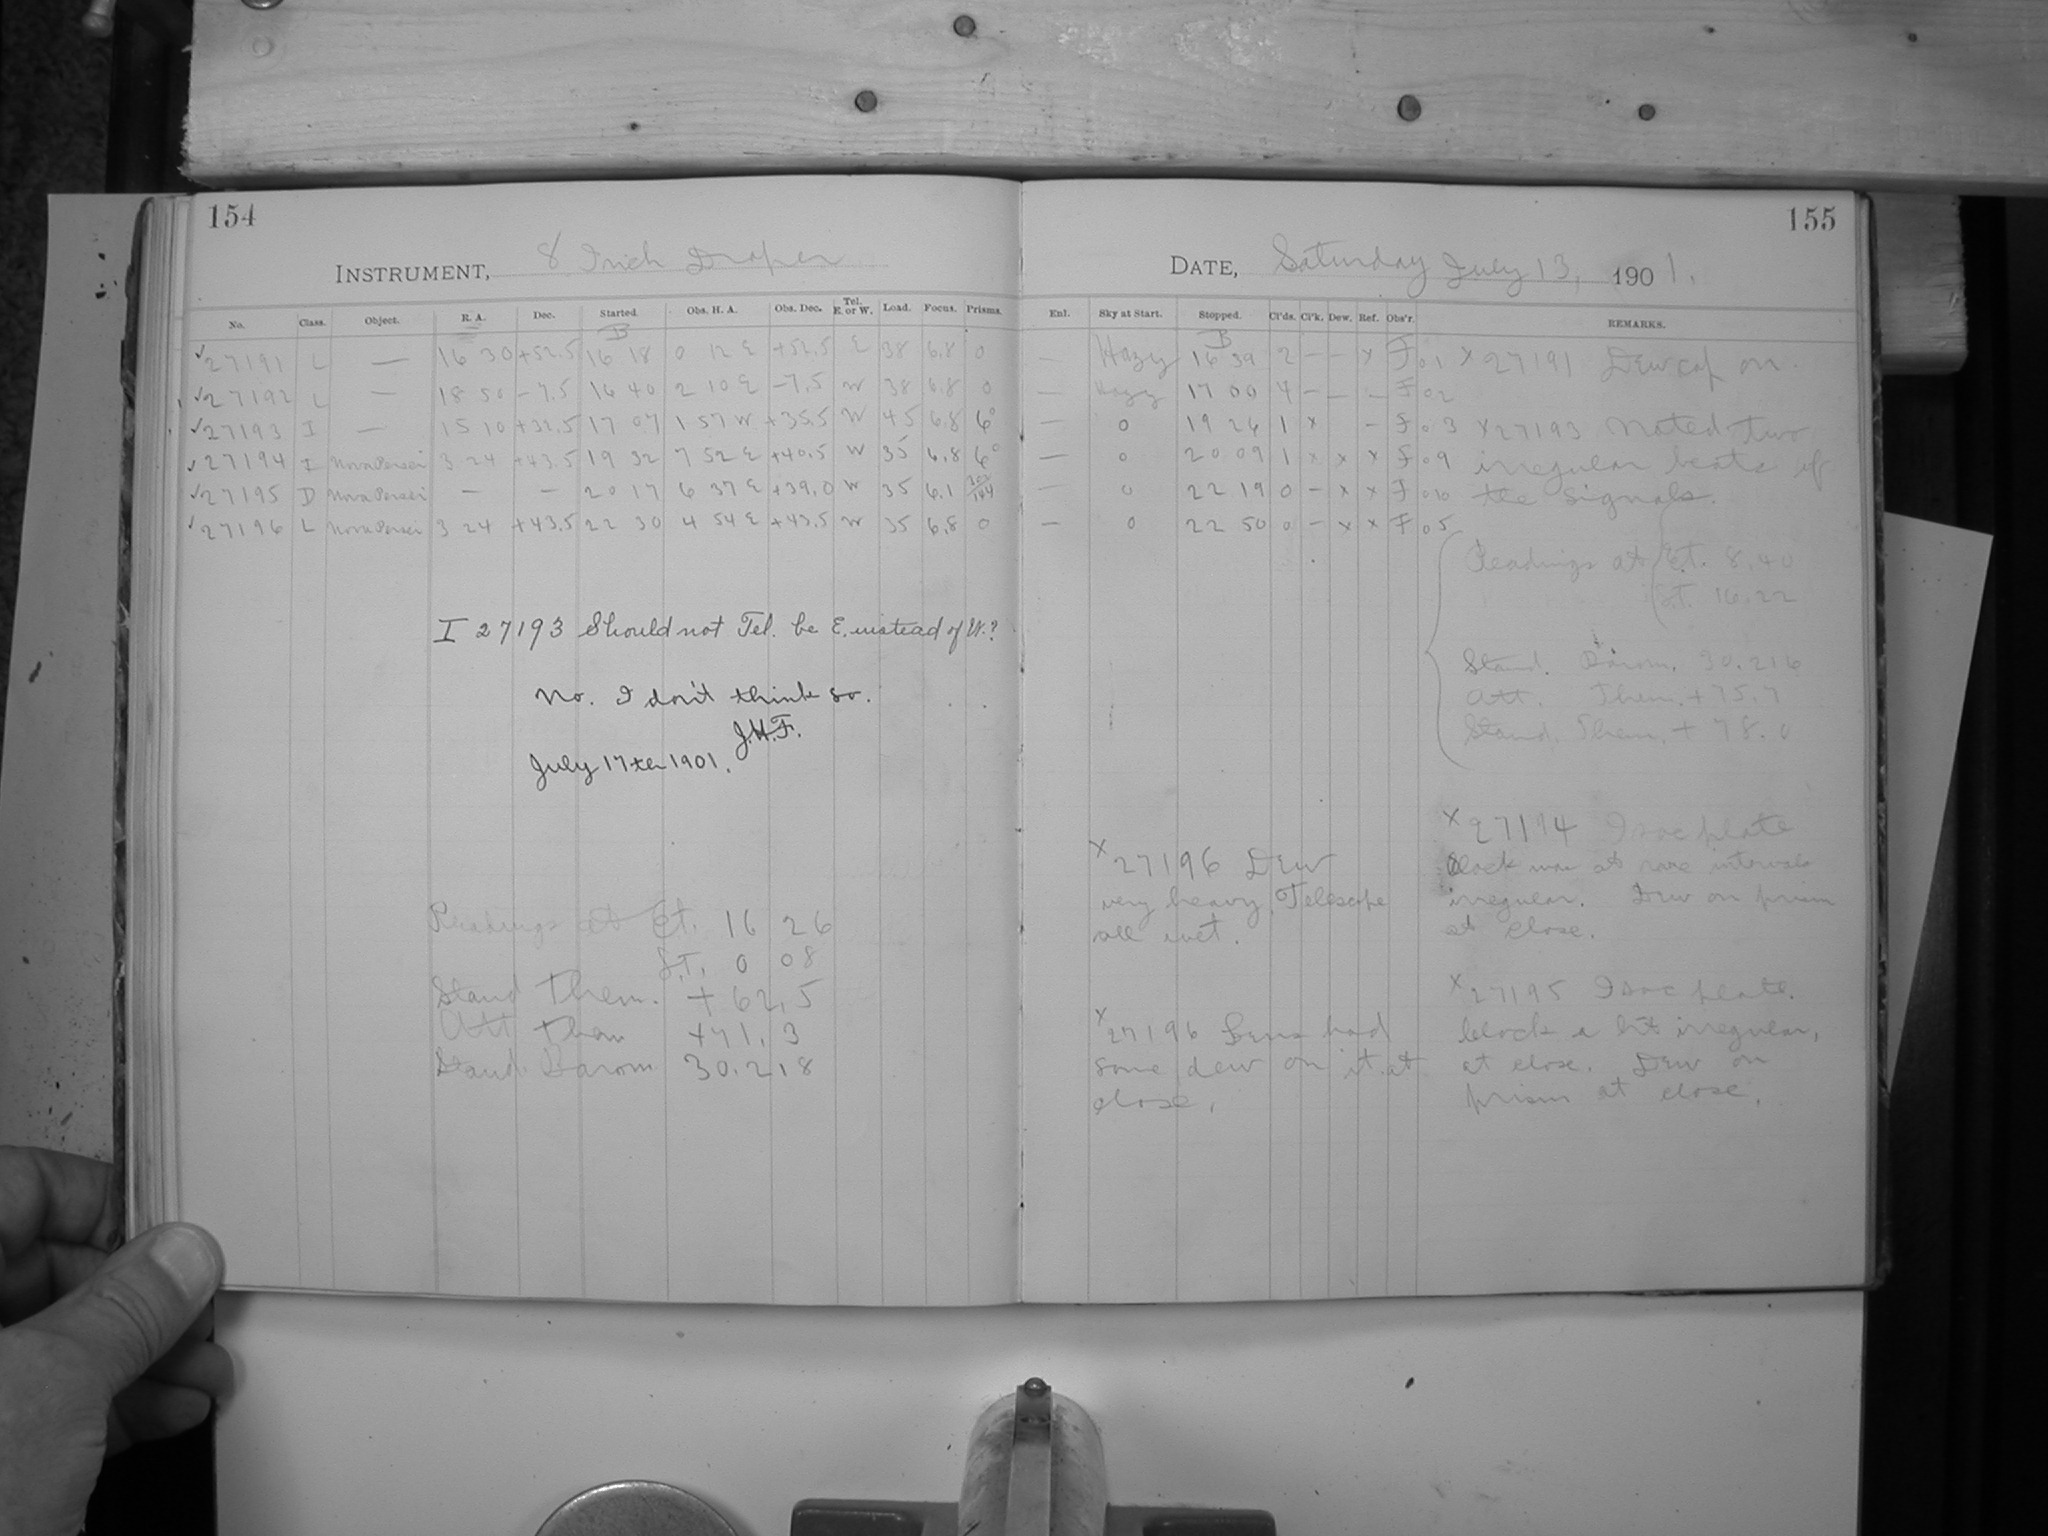 154
INSTRUMENT, 8 Inch Draper
No. Class. Object. R. A. Dec. Started. Obs. H. A. Obs. Dec. Tel. E. or W. Load. Focus. Prisms.
B
✓27191 L — 16 30 +52.5 16 18 0 12 E +52.5 E 38 6.8 0
✓27192 L — 18 50 -7.5 16 40 2 10 E -7.5 W 38 6.8 0
✓27193 I — 15 10 +32.5 17 07 1 57 W +35.5 W 45 6.8 6°
✓27194 I Nova Persei 3 24 +43.5 19 32 7 52 E +40.5 W 35 6.8 6°
✓27195 D Nova Persei — — 20 17 6 37 E +39.0 W 35 6.1
✓27196 L Nova Persei 3 24 +43.5 22 30 4 54 E +43.5 W 35 6.8 0
I 27193 Should not Tel. be E. instead of W.?
No. I don't think so.
J.H.F.
July 17th 1901.
Readings at Et. 16 26
S.T. 0 08
Stand Them. + 62.5
Att Them +71.3
Stand. Barom. 30.218
155
DATE, Saturday July 13, 1901.
Enl. Sky at Start. Stopped. Cl'ds. Cl'k. Dew. Ref. Obs'r. REMARKS.
B
— Hazy 16 39 2 — — x F 01 x27191 Dewcap on.
— Hazy 17 00 4 — — — F 02
— 0 19 26 1 x — F 03 x27193 Noted two
— 0 20 09 1 x x x F 09 irregular beats of
— 0 22 19 0 — x x F 06 the signals.
— 0 22 50 0 — x x F 05
Readings at Et. 8.40
S.T. 16.22
Stand. Barom. 30.216
Att. Them. +75.7
Stand. Them. + 78.0
x27194 Isoc plate
Clock was at rare intervals
irregular. Dew on prism
at close.
x27196 Dew
very heavy. Telescope
all wet.
x27195 Isoc plate.
Clock a bit irregular,
at close. Dew on
prism at close.
x27196 Lens had
some dew on it at
close.